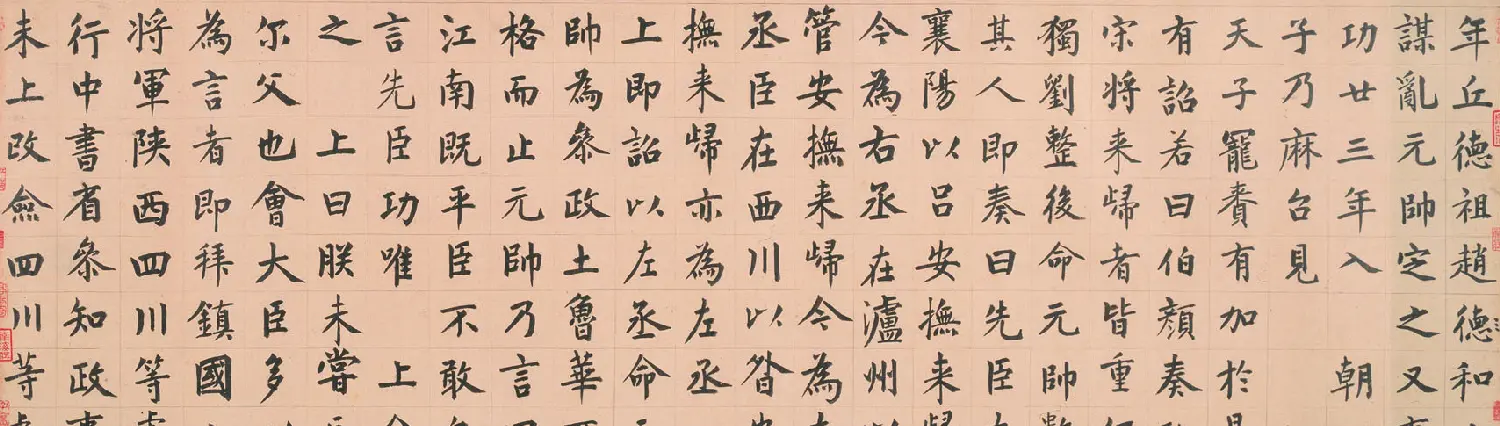 年丘德祖趙德和
謀亂元帥定之又
功廿三年入 朝
子乃麻台見
天子寵賚有加於
有詔若曰伯顏奏
宋将来歸者皆重
獨劉整後命元帥
其人即奏曰先臣
襄陽以呂安撫来
今為右丞在瀘州
管安撫来歸今為
丞臣在西川以昝
撫来歸亦為左丞
上即詔以左丞命
帥為叅政土魯華
格而止元帥乃言
江南既平臣不敢
言先臣功唯 上
之 上曰朕未嘗
尔父也會大臣多
為言者即拜鎮國
将軍陝西四川等
行中書省叅知政
未上改僉四川等